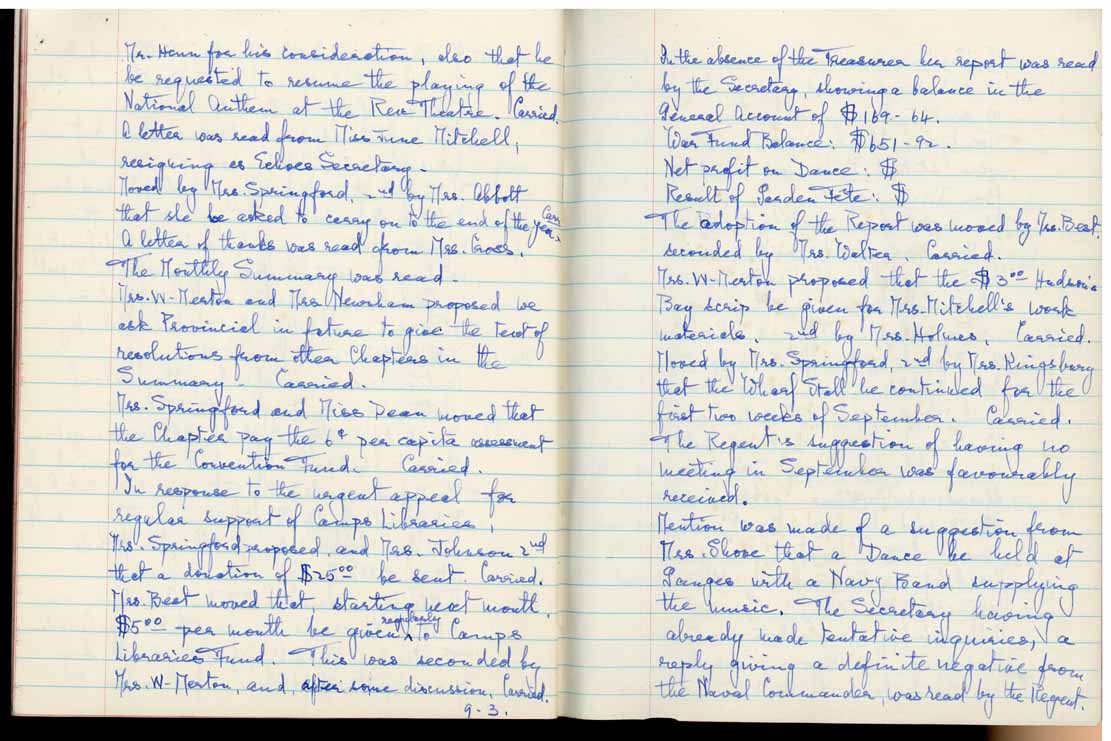 Mr. Henn for his consideration, also that he
be requested to resume the playing of the
National Anthem at the Rex Theatre. Carried.
A letter was read from Miss June Mitchell,
resigning as Echoes Secretary.
Moved by Mrs. Springford, 2nd by Mrs. Abbott
that she be asked to carry on to the end of the year. Carr
A letter of thanks was read from Mrs. Cross.
The Monthly Summary was read.
Mrs. W-Merton and Mrs. Newnham proposed we
ask Provincial in future to give the text of
resolutions from other Chapters in the
Summary. Carried.
Mrs. Springford and Miss Dean moved that
the Chapter pay the 6¢ per capita assessment
for the Convention Fund. Carried.
In response to the urgent appeal for
regular support of Camps Libraries,
Mrs. Springford proposed, and Mrs. Johnson 2nd
that a donation of $25.00 be sent. Carried.
Mrs. Best moved that, starting next month,
$5.00 per month be given regularly to Camps
Libraries Fund. This was seconded by
Mrs. W-Merton, and, after some discussion, Carried.
9-3.
In the absence of the Treasurer her report was read
by the Secretary, showing a balance in the
General Account of $169-64.
War Fund Balance: $651-92.
Net profit on Dance: $
Result of Garden Fête: $
The adoption of the Report was moved by Mrs. Best,
seconded by Mrs. Walter. Carried.
Mrs. W-Merton proposed that the $3.00 Hudson's
Bay scrip be given for Mrs. Mitchell's work
materials. 2nd by Mrs. Holmes. Carried.
Moved by Mrs. Springford, 2nd by Mrs. Kingsbury
that the Wharf Stall be continued for the
first two weeks of September. Carried.
The Regent's suggestion of having no
meeting in September was favourably
received.
Mention was made of a suggestion from
Mrs. Shove that a Dance be held at
Ganges with a Navy Band supplying
the music. The Secretary having
already made tentative inquiries, a
reply giving a definite negative from
the Naval Commander, was read by the Regent.